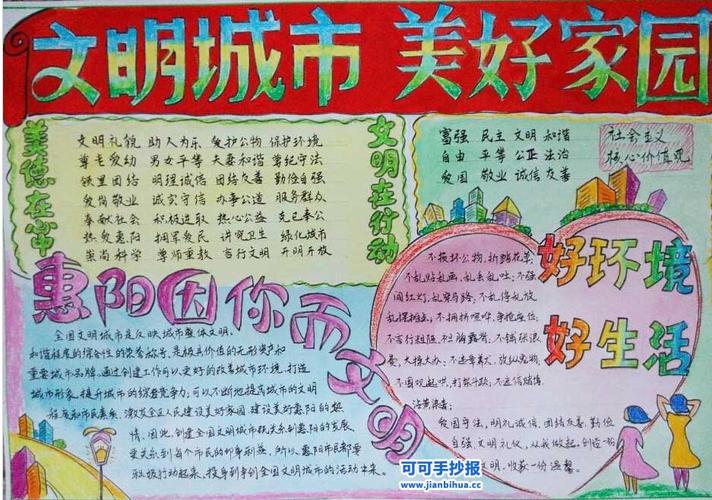 文明城市 美好家园
美德在心中
文明礼貌 助人为乐 爱护公物 保护环境
尊老爱幼 男女平等 夫妻和谐 尊纪守法
邻里团结 明理诚信 团结友善 勤俭自强
爱岗敬业 诚实守信 办事公道 服务群众
奉献社会 积极进取 热心公益 克己奉公
热爱惠阳 拥军爱民 讲究卫生 绿化城市
崇尚科学 尊师重教 言行文明 开明开放
文明在行动
富强 民主 文明 和谐
自由 平等 公正 法治
爱国 敬业 诚信 友善
社会主义
核心价值观
惠阳因你而文明
全国文明城市是反映城市整体文明、
和谐程度的综合性的荣誉称号,是极具价值的无形资产和
重要城市品牌。通过创建工作可以更好的改善城市环境,打造
城市形象,提升城市的综合竞争力,可以不断地提高城市的文明
程度和市民素质,激发全区人民建设美好家园、建设美好惠阳的热
情。因此,创建全国文明城市既关系到惠阳的发展,
更关系到每个市民的切身利益。所以,惠阳市民都要
积极行动起来,投身到争创全国文明城市的活动中来。
好环境
好生活
不损坏公物,折踏花草,
不乱贴乱画,乱丢乱吐;不强
闯红灯,乱穿马路;不乱停乱放
乱摆摊点;不拥挤喧哗,争抢座位;
不言行粗陋,袒胸露背;不铺张浪
费,大操大办;不违章养犬,放纵宠物;
不围观起哄,打架斗殴;不迷信赌博,
爱国守法,明礼诚信,团结友善,勤俭
自强,文明礼仪,从我做起。创造一份
文明,收获一份温馨。
可可手抄报
www.jianbihua.cc